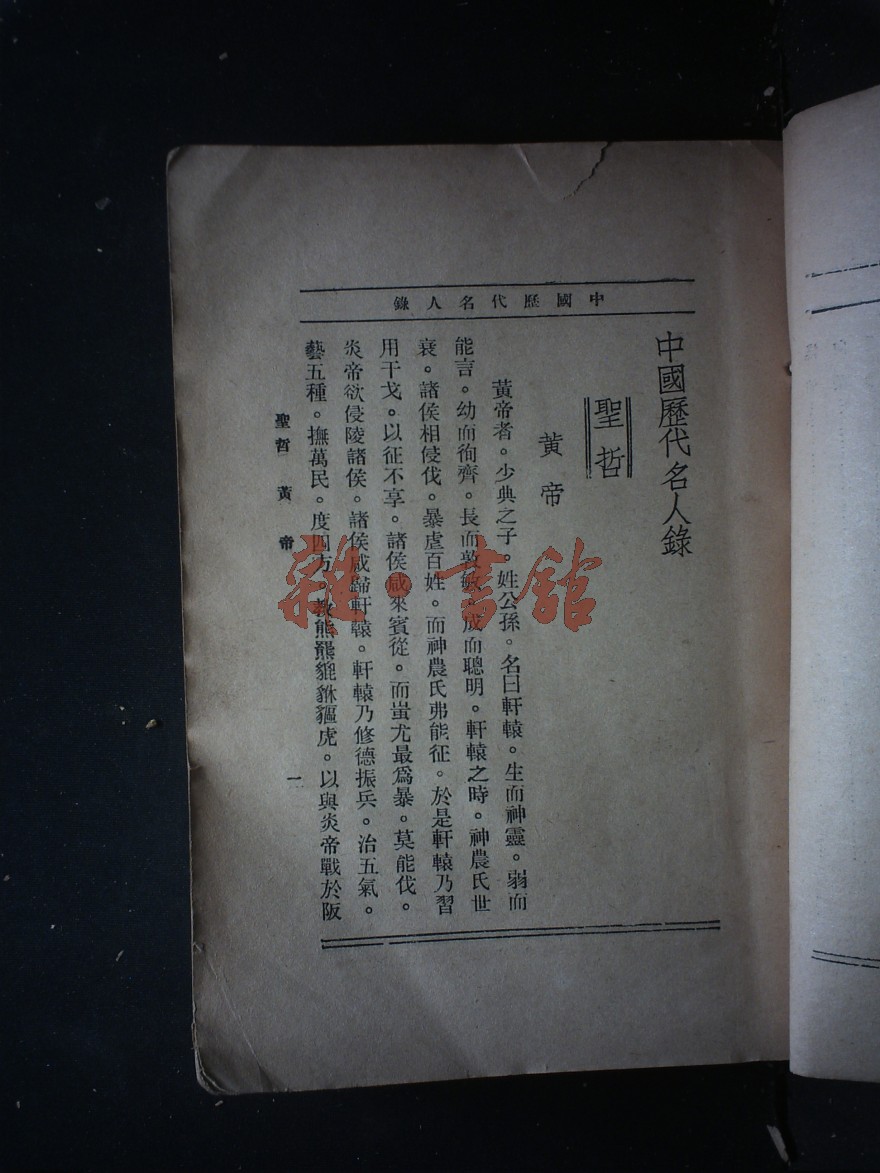 中國歷代名人錄
中國歷代名人錄
聖哲
黃帝
黃帝者。少典之子。姓公孫。名曰軒轅。生而神靈。弱而
能言。幼而徇齊。長而敦敏。成而聰明。軒轅之時。神農氏世
衰。諸侯相侵伐。暴虐百姓。而神農氏弗能征。於是軒轅乃習
用干戈。以征不享。諸侯咸來賓從。而蚩尤最爲暴。莫能伐。
炎帝欲侵陵諸侯。諸侯咸歸軒轅。軒轅乃修德振兵。治五氣。
藝五種。撫萬民。度四方。教熊羆貔貅貙虎。以與炎帝戰於阪
聖哲 黃帝
一
雜·書館